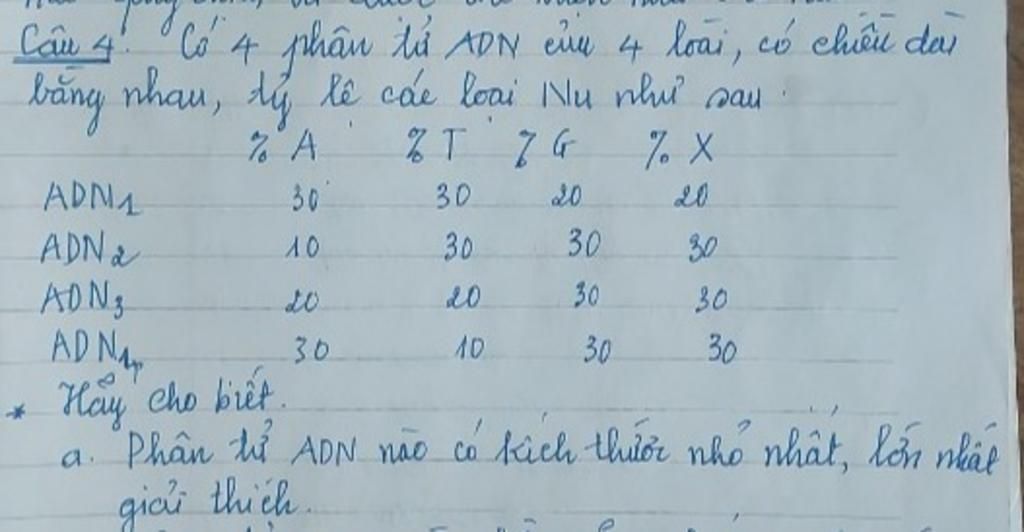 Câu 4: Có 4 phân tử ADN của 4 loài, có chiều dài
bằng nhau, tỷ lệ các loại Nu như sau:
% A % T % G % X
ADN1 30 30 20 20
ADN2 10 30 30 30
ADN3 20 20 30 30
ADN4 30 10 30 30
* Hãy cho biết.
a. Phân tử ADN nào có kích thước nhỏ nhất, lớn nhất
giải thích.